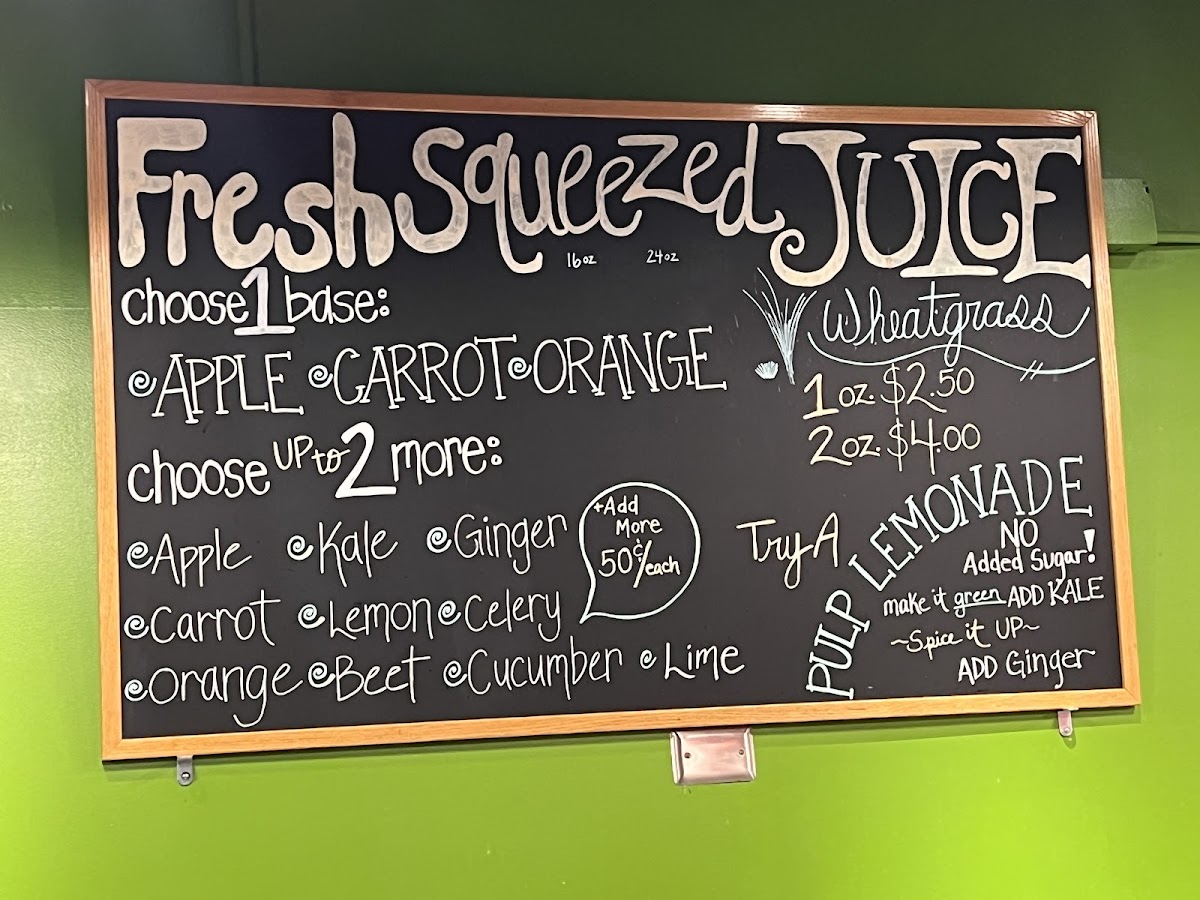 Fresh Squeezed JUICE
16oz 24oz
choose 1 base:
APPLE CARROT ORANGE
choose UP to 2 more:
Apple Kale Ginger
Carrot Lemon Celery
Orange Beet Cucumber Lime
+Add
More
50¢/each
Wheatgrass
1 oz. $2.50
2 oz. $4.00
Try A
PULP LEMONADE
NO
Added Sugar!
make it green ADD KALE
~Spice it UP~
ADD Ginger